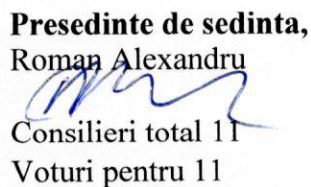 Presedinte de sedinta,
Roman Alexandru
Consilieri total 11
Voturi pentru 11